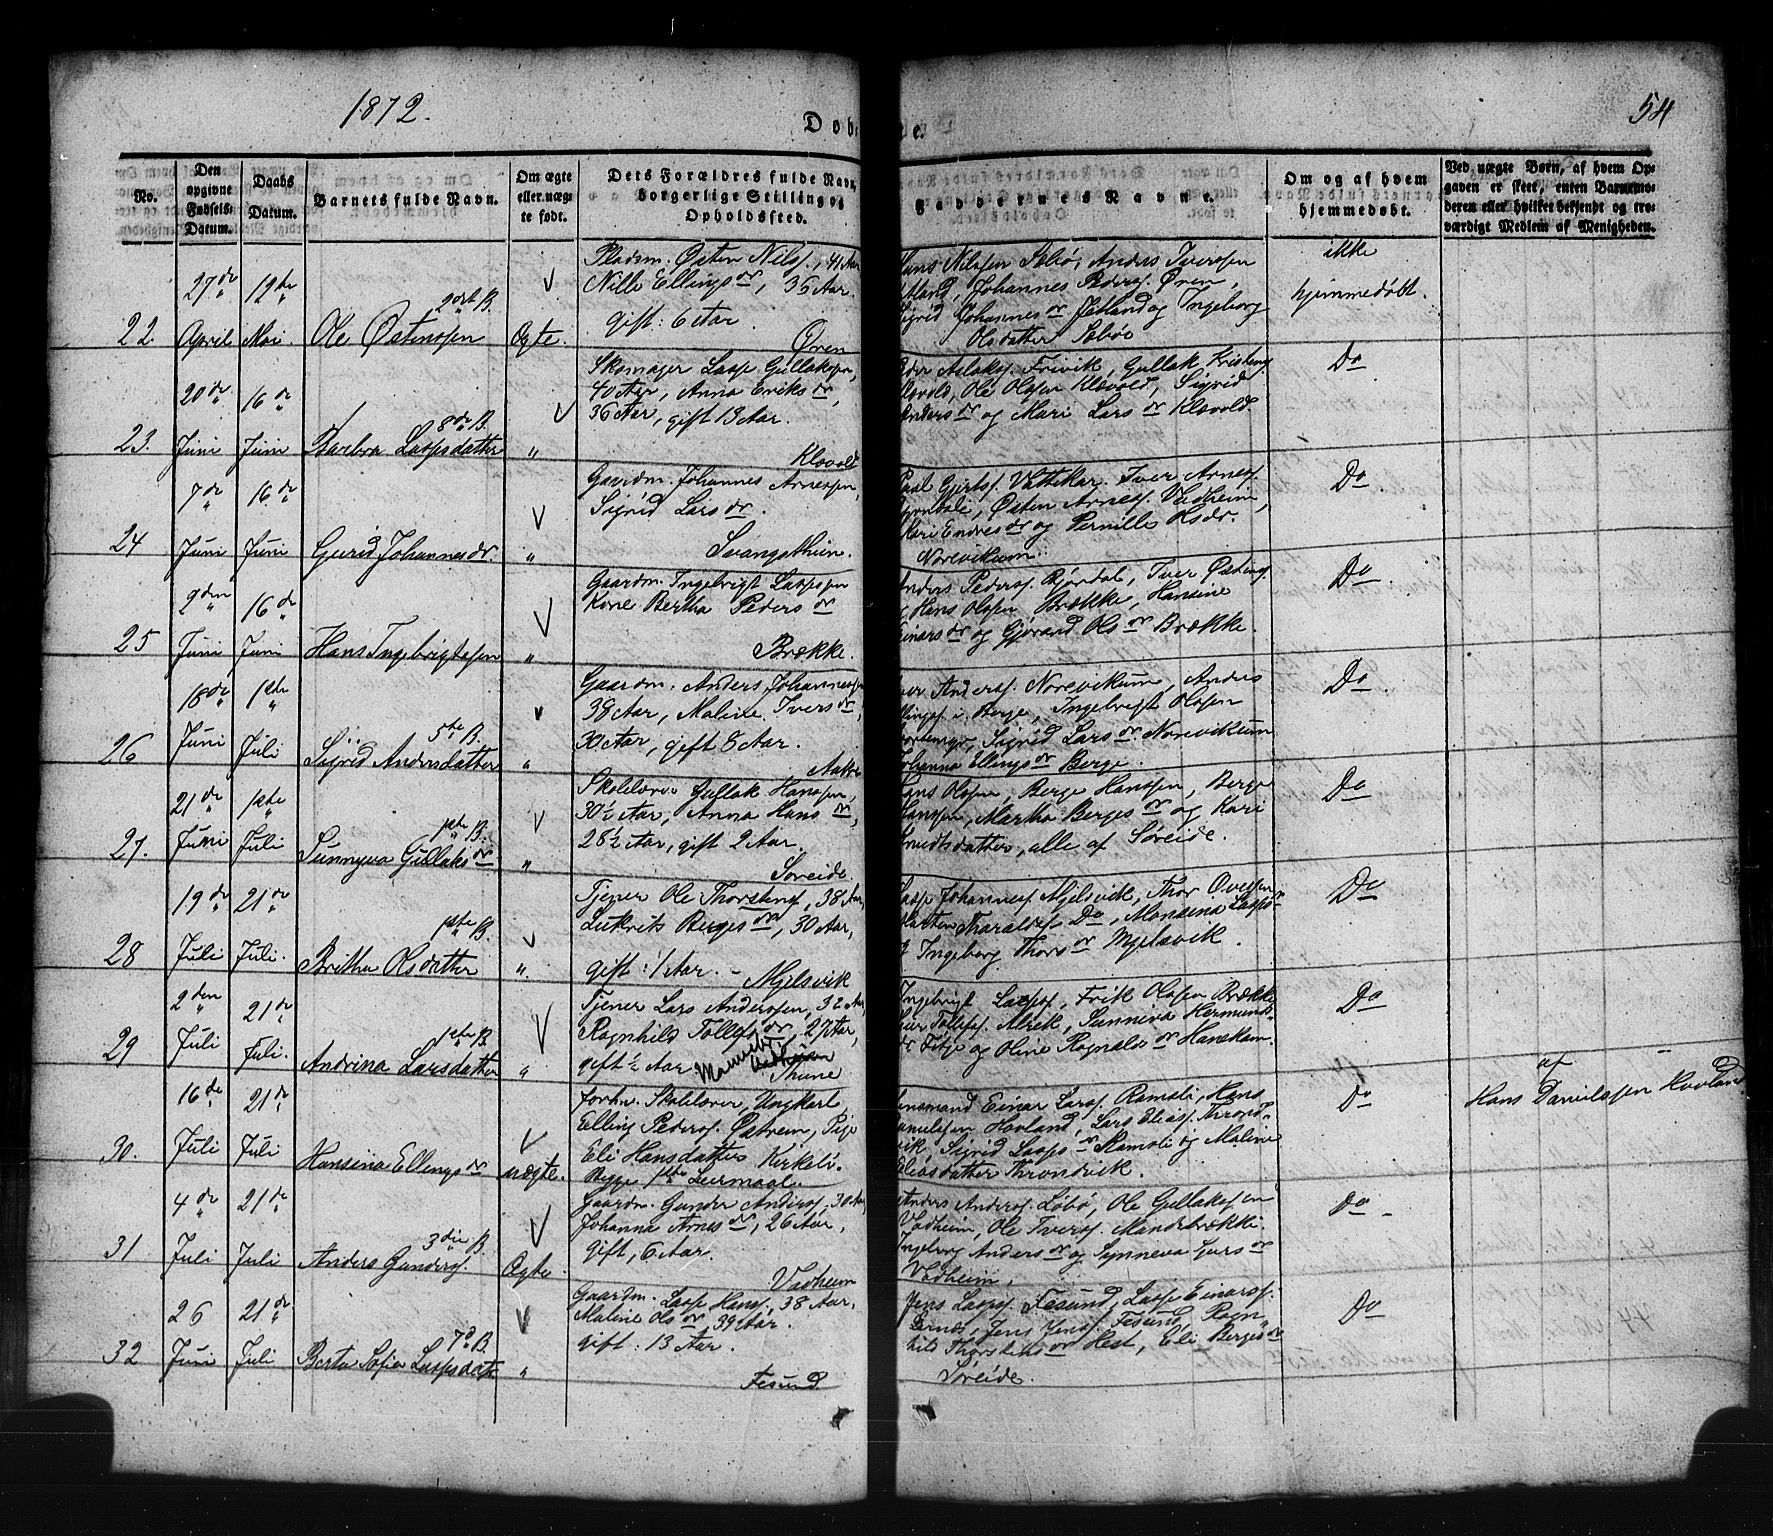 1872.
Døbte.
54
No.
Den opgivne Fødsels-Datum.
Daabs Datum.
Barnets fulde Navn.
Om ægte eller uægte født.
Dets Forældres fulde Navn, borgerlige Stilling og Opholdssted.
Faddernes Navne.
Om og af hvem hjemmedøbt.
Ved uægte Børn, af hvem Opgaven er skeet, enten Barnemoderen eller hvilket bekjendt og troværdigt Medlem af Menigheden.
22. 27de April
12te Mai
2det B.
Ole Østensen
Ægte.
Pladsm. Østen Nilss., 41 Aar
Nille Ellingsdr, 36 Aar.
gift: 6 Aar.
Øren
Hans Nilssen Sæbø, Anders Iversen
Johannes Peders. Øren,
Sigrid Johannesdr og Ingeborg
Olsdatter Sæbø
ikke
hjemmedøbt.
23. 20de Juni
16de Juni
8de B.
Barbra Lassesdatter
"
Skomager Lasse Gullaksen,
40 Aar, Anna Eriksdr,
36 Aar, gift 13 Aar.
Klævold
Aslaks. Frivik, Gullak Kristens.
Klævold, Ole Olsen Klævold, Sigrid
Andersdr og Mari Larsdr Klævold.
Do
24 7de Juni
16de Juni
Gurid Johannesdr.
"
Gaardm. Johannes Arnesen,
Sigrid Larsdr.
Paul Gjerts. Vattekar. Iver Arness.
Østen Arness. Vadheim,
Mari Endresdr og Pernille Olsdr.
Norevikum.
Do
25 9den Juni
16de Juni
Hans Ingebrigtsen
"
Gaardm. Ingebrigt Lassesen
Kone Bertha Pedersdr
Brække.
Anders Peders. Bjørdal, Iver Østens.
og Hans Olsen Brække, Hansine
Einarsdr og Gjørand Olsdr Brække.
Do
26 18de Juni
1ste Juli
5te B.
Sigrid Andersdatter
"
Gaardm. Anders Johannesen
38 Aar, Maline Iversdr,
30 Aar, gift 8 Aar.
Iver Anders. Norevikum, Anders
Ellings. i Berge, Ingebrigt Olsen
Sigrid Larsdr Norevikum
Johanna Ellingsdr Berge.
Do
27. 21de Juni
1ste Juli
1ste B.
Sunnyva Gullaksdr
"
Skolelærer Gullak Hansen,
30½ Aar, Anna Hansdr,
28½ Aar, gift 2 Aar.
Søreide.
Hans Olsen, Berge Hansen, Berge
Hansen, Martha Bergesdr og Kari
Knudsdatter, alle af Søreide.
Do
28 19de Juli
21de Juli.
1ste B.
Britha Olsdatter
"
Tjener Ole Thorstens., 38 Aar,
Bergesdr, 30 Aar,
gift: 1 Aar. – Mjelsvik
Lasse Johanness. Mjelsvik, Thor Ovesen
Haralds. Do, Mansina Lassesdr
og Ingeborg Thorsdr Mjelsvik.
Do
29 2den Juli
21de Juli.
1ste B.
Andrina Larsdatter
"
Tjener Lars Andersen, 32 Aar,
Ragnhild Tollefsdr, 27 Aar,
gift ½ Aar
Thune
Ingebrigt Lasses., Erik Olsen Brække
Tollefs. Alrek, Sunneva Hermunds-
dr Fitje og Oline Ragnaldsdr Hanekam.
Do
30. 16de Juli
21de Juli
Hansina Ellingsdr
uægte.
forhv. Skolelærer, Ungkarl
Elling Peders. Østrem, Pige
Eli Hansdatter Kirkeli.
Begge 1ste Leiermaal.
Lensmand Einar Lars. Ramsli, Hans
Danielsen Hovland, Lars Elias. Thrond-
vik, Sigrid Lassesdr Ramsli og Maline
Eliasdatter Throndvik.
Do
af
Hans Danielsen Hovland
31 4de Juli
21de Juli
3die B.
Anders Gunders.
Ægte.
Gaardm. Gunder Anders., 30 Aar
Johanna Arnesdr, 26 Aar,
gift, 6 Aar.
Vadheim
Anders Anders. Løbø, Ole Gullaksen
Vadheim, Ole Ivers. Mandsbrække.
Ingeborg Andersdr og Synneva Larsdr
Vadheim.
Do
32 26 Juni
21de Juli
7de B.
Berta Sofie Lassesdatr
"
Gaardm. Lasse Hans., 38 Aar,
Maline Olsdr, 39 Aar.
gift: 13 Aar.
Fesund
Jens Lasses. Fesund, Lasse Einars.
Jens Jens. Fesund, Ragn-
hild Thorstensdr Hest, Eli Bergesdr
Søreide.
Do